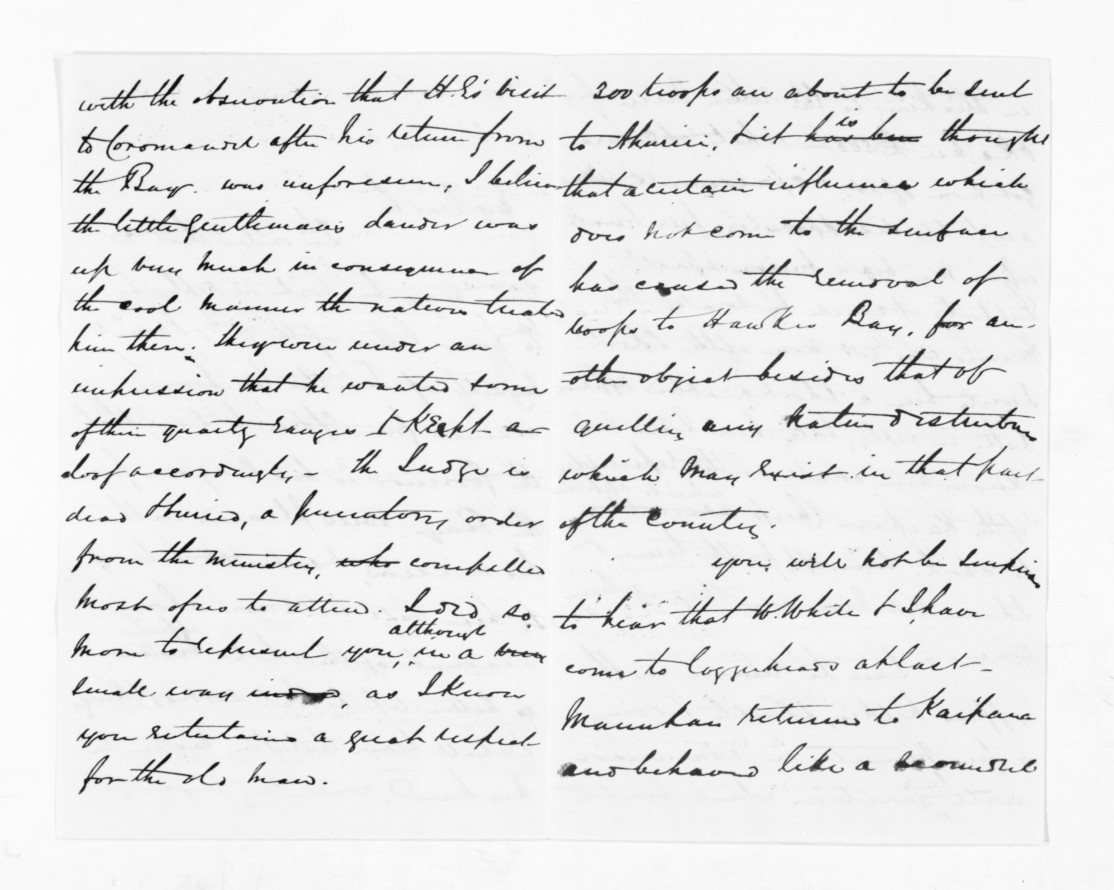 with the observation that H.E's visit
to Coromandel after his return from
the Bay was unforseen, I believe
the little gentleman's dander was
up very much in consequence of
the cool manner the natives treated
him then. They were under an
impression that he wanted some
of their quartz ranges & kept a-
loof accordingly - The Judge is
dead & buried, a order
from the minister, who compelled
most of us to attend. I did so
more to represent you, although in a very
small way indeed, as I know
you entertained a great respect
for the old man.
200 troops are about to be sent
to Ahuriri, but has been is thought
that a certain influence which
does not come to the surface
has caused the removal of
troops to Hawkes Bay, for an-
other object besides that of
quelling any Native disturbance
which may exist in that part
of the country.
you will not be surprised
to hear that W. White & I have
come to loggerheads at last -
returned to Kaipara
and behaved like a scoundrel